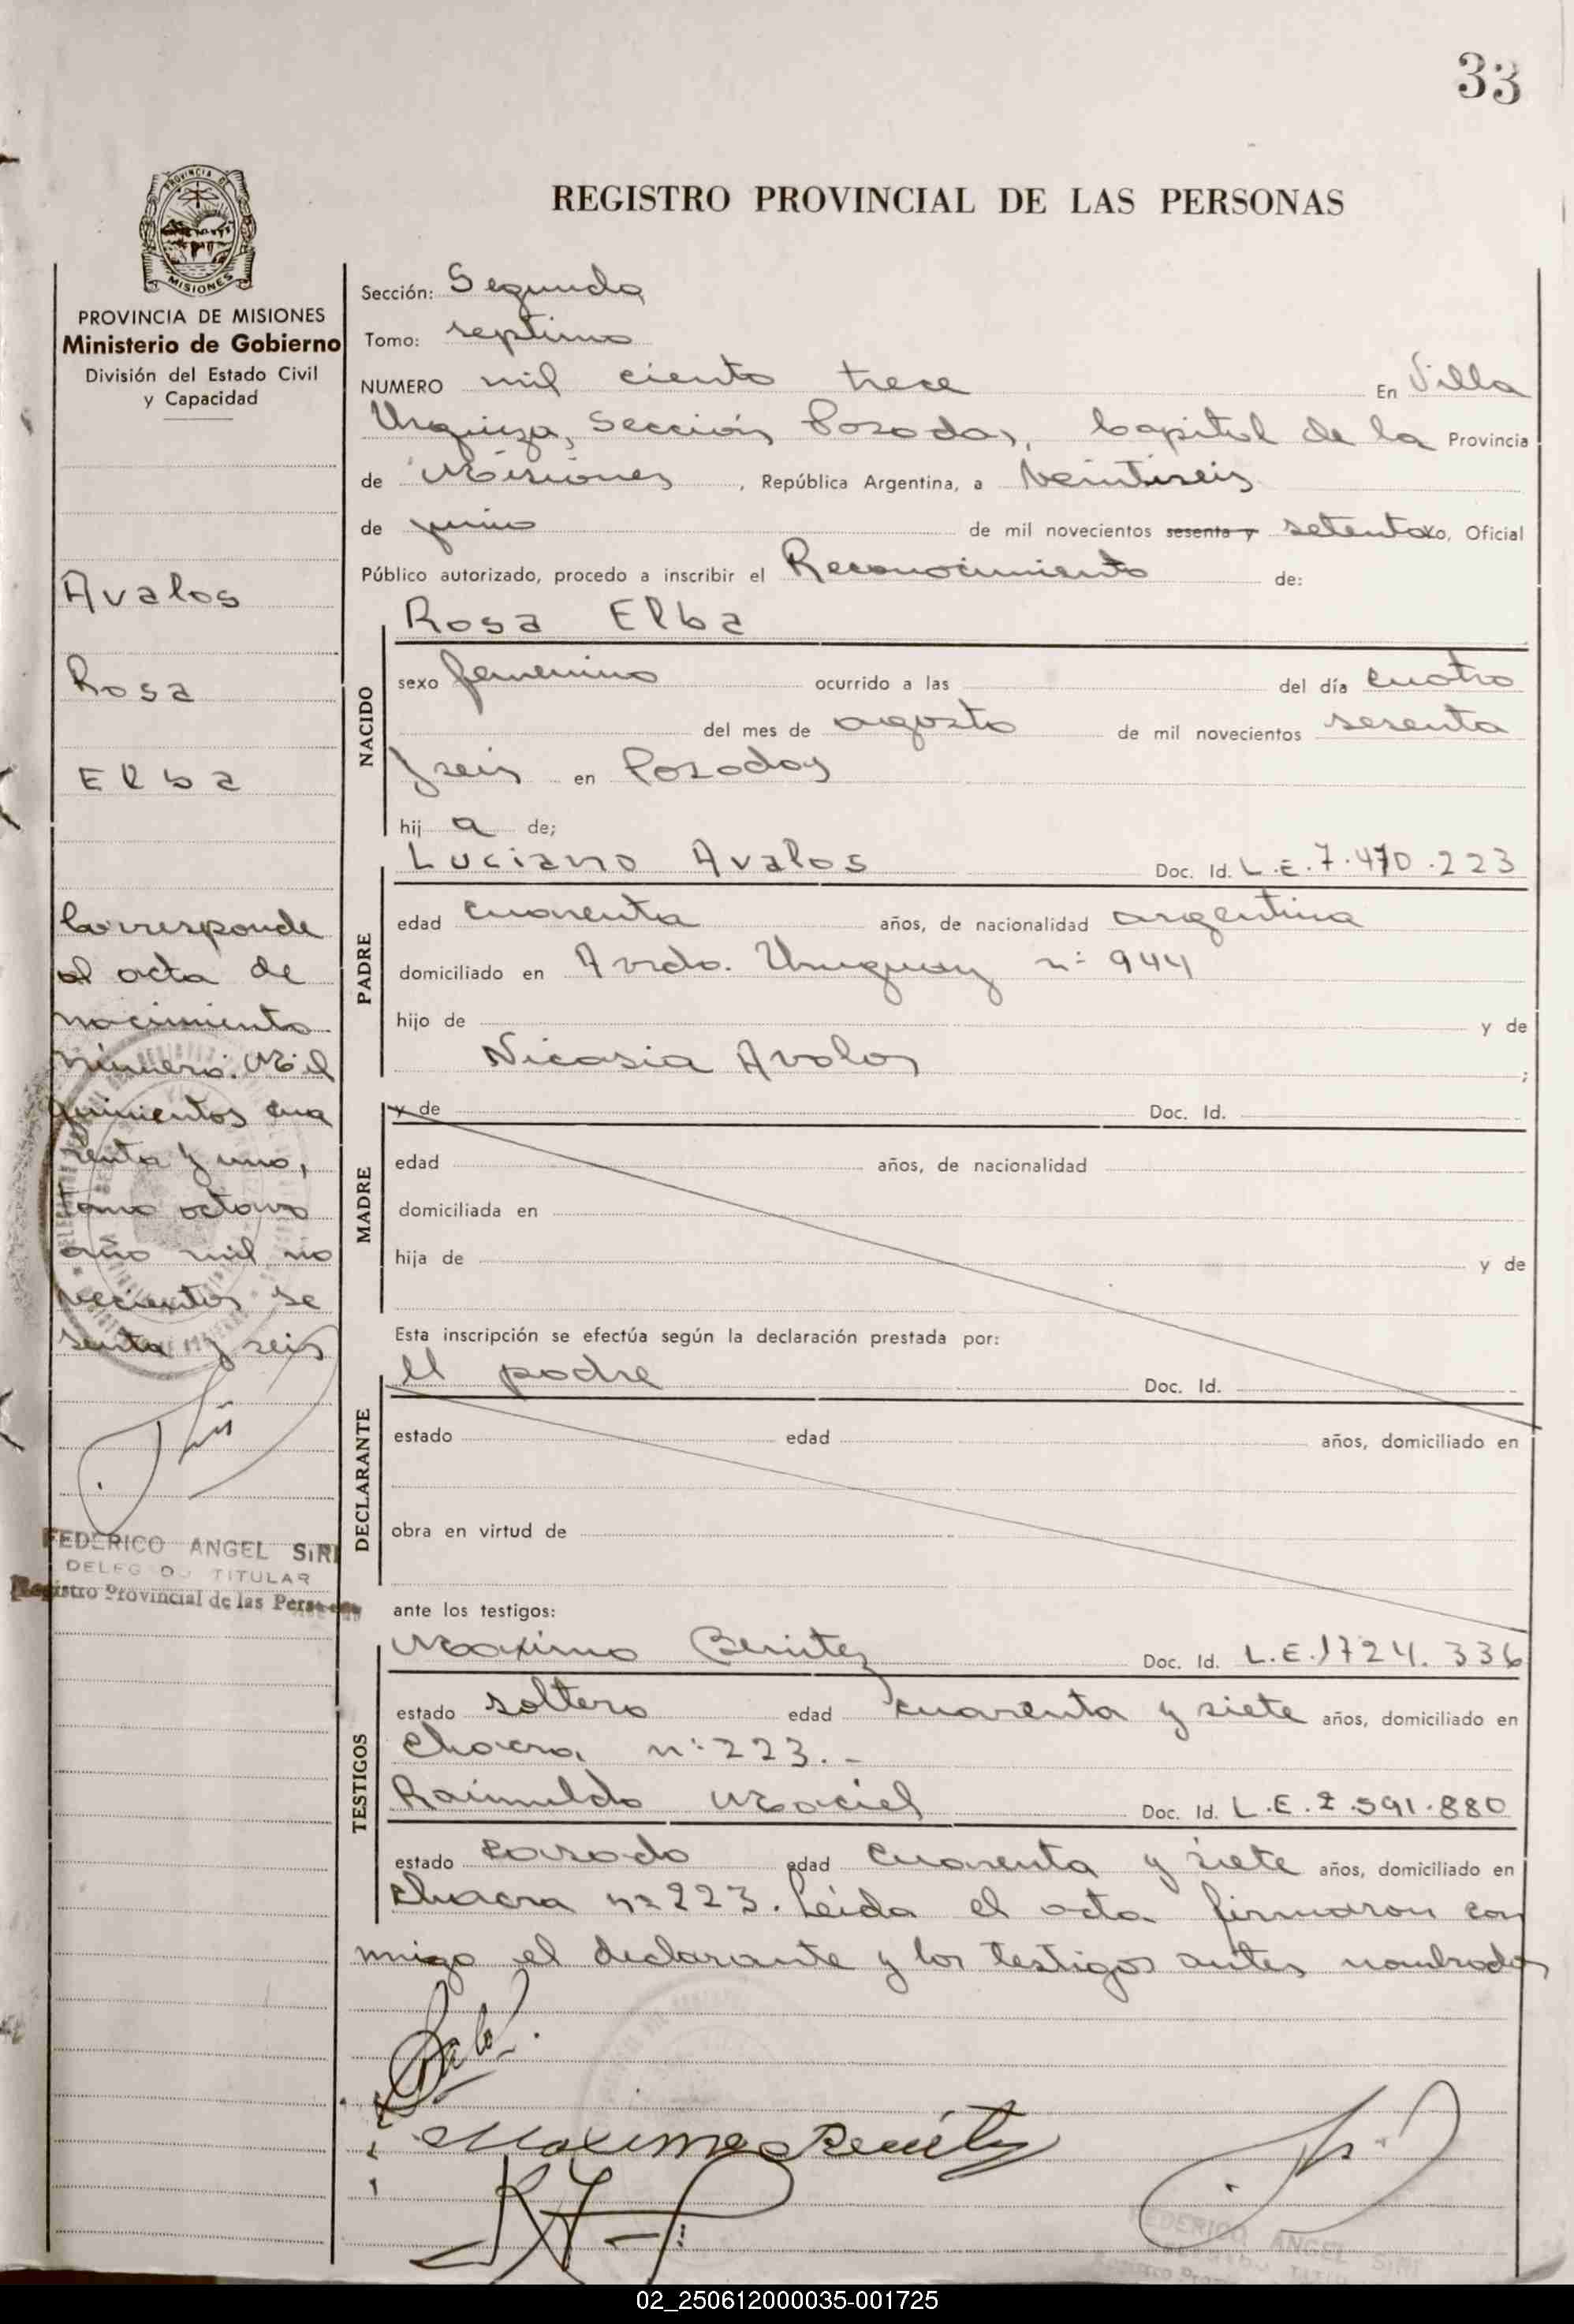 33
PROVINCIA DE
MISIONES
REGISTRO PROVINCIAL DE LAS PERSONAS
PROVINCIA DE MISIONES
Ministerio de Gobierno
División del Estado Civil
y Capacidad
Avalos
Rosa
Elba
Corresponde
al acta de
nacimiento
número: Mil
quinientos cua
renta y uno,
tomo octavo
año mil no
vecientos se
senta y seis
FEDERICO ANGEL SIRI
DELEG O TITULAR
Registro Provincial de las Personas
Sección: Segunda
Tomo: septimo
NUMERO mil ciento trece En Villa
Urquiza, Sección Posadas, Capital de la Provincia
de Misiones, República Argentina, a Veintiseis
de junio de mil novecientos sesenta y setenta yo, Oficial
Público autorizado, procedo a inscribir el Reconocimiento de:
NACIDO
Rosa Elba
sexo femenino ocurrido a las del día cuatro
del mes de agosto de mil novecientos sesenta
y seis en Posadas
hij a de;
PADRE
Luciano Avalos Doc. Id. L.E. 7.470.223
edad cuarenta años, de nacionalidad argentina
domiciliado en Avda. Uruguay nº 944
hijo de y de
Nicasia Avalos ;
MADRE
y de Doc. Id.
edad años, de nacionalidad
domiciliada en
hija de y de
Esta inscripción se efectúa según la declaración prestada por:
DECLARANTE
El padre Doc. Id.
estado edad años, domiciliado en
obra en virtud de
ante los testigos:
TESTIGOS
Maximo Benitez Doc. Id. L.E. 1724.336
estado soltero edad cuarenta y siete años, domiciliado en
Chacra nº 223.-
Raimundo Maciel Doc. Id. L.E. 2.591.880
estado casado edad cuarenta y siete años, domiciliado en
Chacra nº 223. Leida el acta firmaron con
migo el declarante y los testigos antes nombrados
Maximo Benitez
FEDERICO ANGEL SIRI
02_250612000035-001725